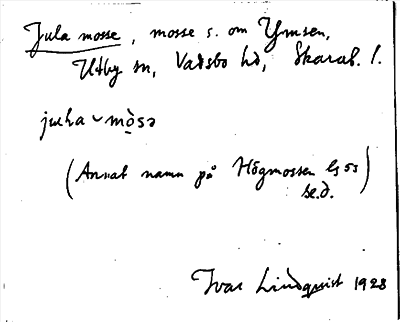 Jula mosse, mosse s. om Ymsen,
Utby sn, Vadsbo hd, Skarab. l.
juha ⌣ mò̱sə
(Annat namn på Högmossen
se.d.)
Ivar Lindquist 1928